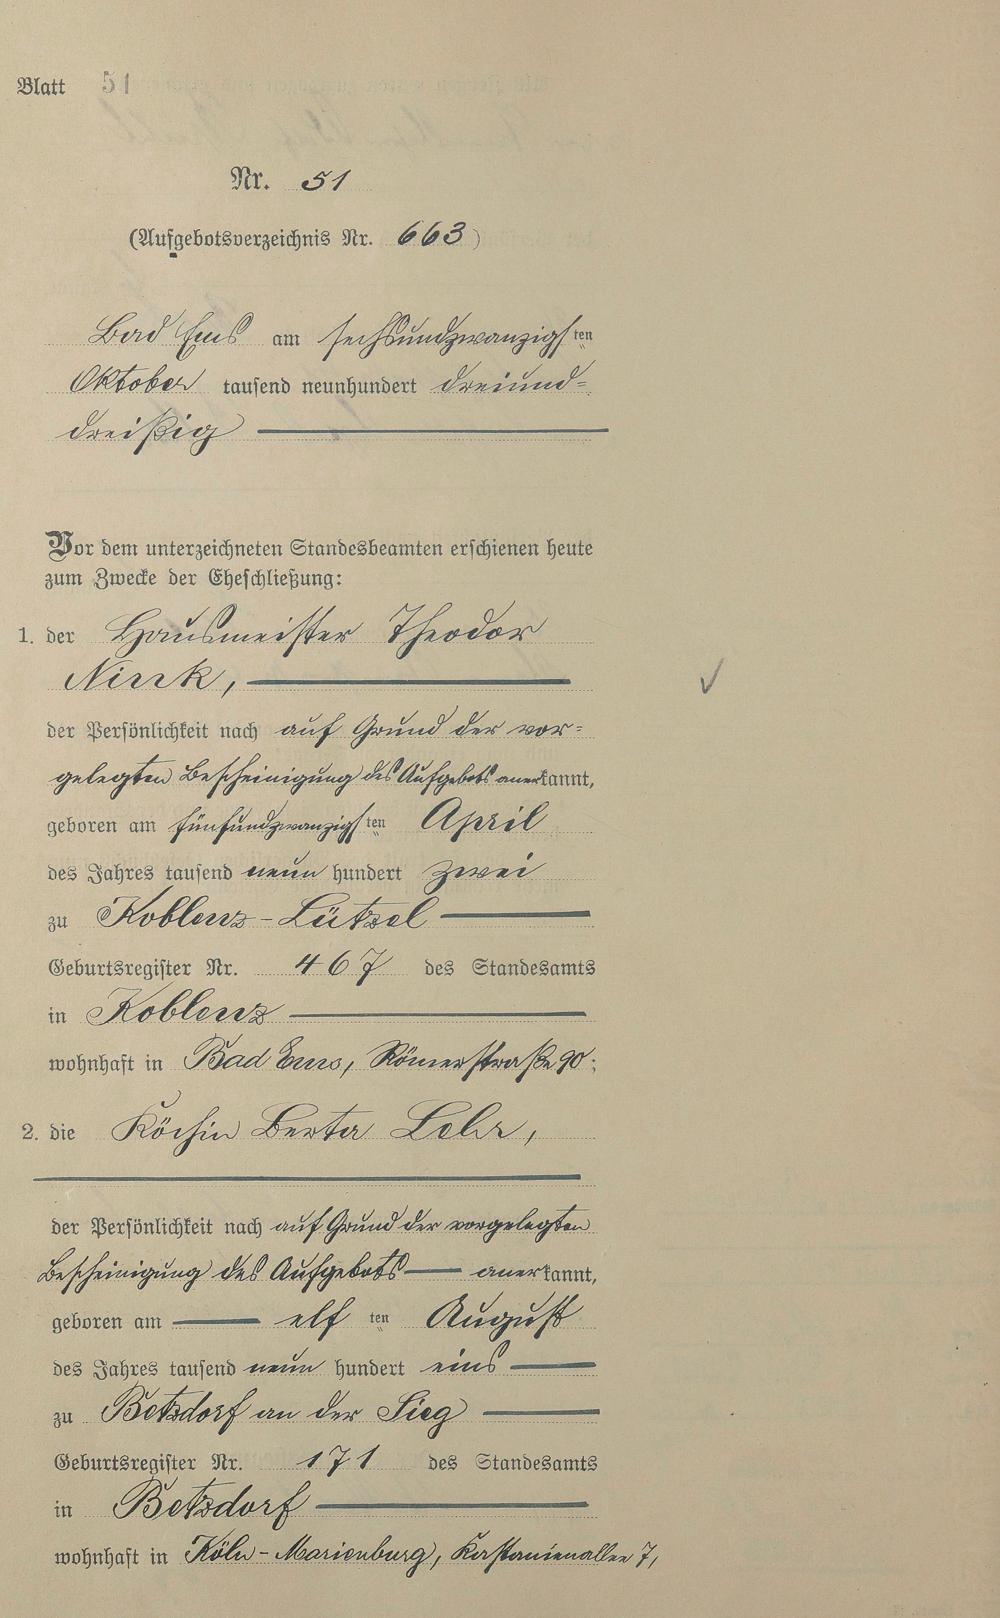 Blatt 51
Nr. 51
(Aufgebotsverzeichnis Nr. 663)
Bad Ems am sechsundzwanzigsten
Oktober tausend neunhundert dreiund=
dreißig
Vor dem unterzeichneten Standesbeamten erschienen heute
zum Zwecke der Eheschließung:
1. der Hausmeister Theodor
Nink,
der Persönlichkeit nach auf Grund der vor=
gelegten Bescheinigung des Aufgebots anerkannt,
geboren am fünfundzwanzigsten April
des Jahres tausend neun hundert zwei
zu Koblenz-Lützel
Geburtsregister Nr. 467 des Standesamts
in Koblenz
wohnhaft in Bad Ems, Römerstraße 90;
2. die Köchin Berta Lehr,
der Persönlichkeit nach auf Grund der vorgelegten
Bescheinigung des Aufgebots anerkannt,
geboren am elften August
des Jahres tausend neun hundert eins
zu Betzdorf an der Sieg
Geburtsregister Nr. 171 des Standesamts
in Betzdorf
wohnhaft in Köln-Marienburg, Kastanienallee 7,